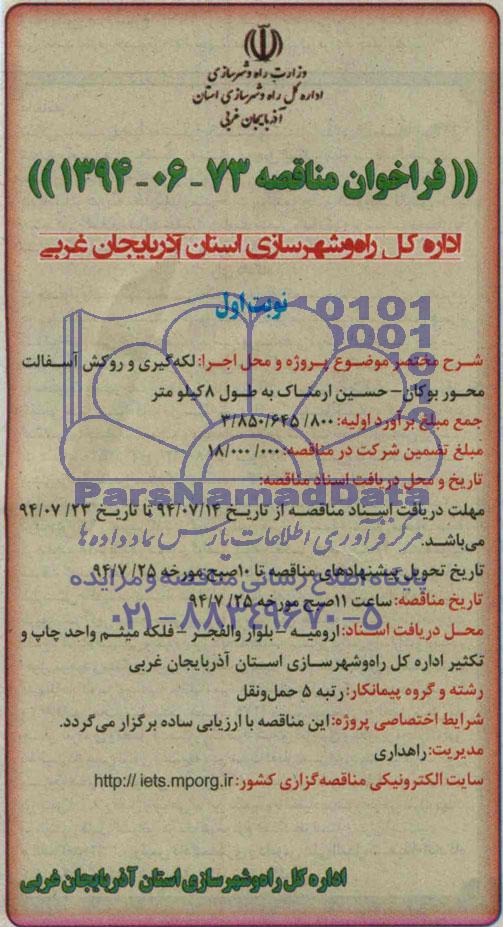 وزارت راه و شهرسازی
اداره کل راه و شهرسازی استان
آذربایجان غربی
(( فراخوان مناقصه ۷۳ - ۰۶ - ۱۳۹۴ ))
اداره کل راه‌وشهرسازی استان آذربایجان غربی
نوبت اول
شرح مختصر موضوع پروژه و محل اجرا: لکه‌گیری و روکش آسفالت
محور بوکان – حسین ارمناک به طول ۸ کیلو متر
جمع مبلغ برآورد اولیه: ۳/۸۵۰/۶۴۵ /۸۰۰
مبلغ تضمین شرکت در مناقصه: ۱۸/۰۰۰ /۰۰۰
تاریخ و محل دریافت اسناد مناقصه:
مهلت دریافت اسناد مناقصه از تاریخ ۹۴/۰۷/۱۴ تا تاریخ ۲۳/ ۹۴/۰۷
می‌باشد.
تاریخ تحویل پیشنهادهای مناقصه تا ۱۰صبح مورخه ۲۵/ ۹۴/۷
تاریخ مناقصه: ساعت ۱۱صبح مورخه ۲۵/ ۹۴/۷
محل دریافت اسناد: ارومیه – بلوار والفجر – فلکه میثم واحد چاپ و
تکثیر اداره کل راه‌وشهرسازی استان آذربایجان غربی
رشته و گروه پیمانکار: رتبه ۵ حمل‌ونقل
شرایط اختصاصی پروژه: این مناقصه با ارزیابی ساده برگزار می‌گردد.
مدیریت: راهداری
سایت الکترونیکی مناقصه‌گزاری کشور: http:// iets.mporg.ir
اداره کل راه‌وشهرسازی استان آذربایجان غربی
ParsNamadData
مرکز فرآوری اطلاعات پارس نماد داده ها
پایگاه اطلاع رسانی مناقصه و مزایده
۰۲۱-۸۸۳۴۹۶۷۰-۵